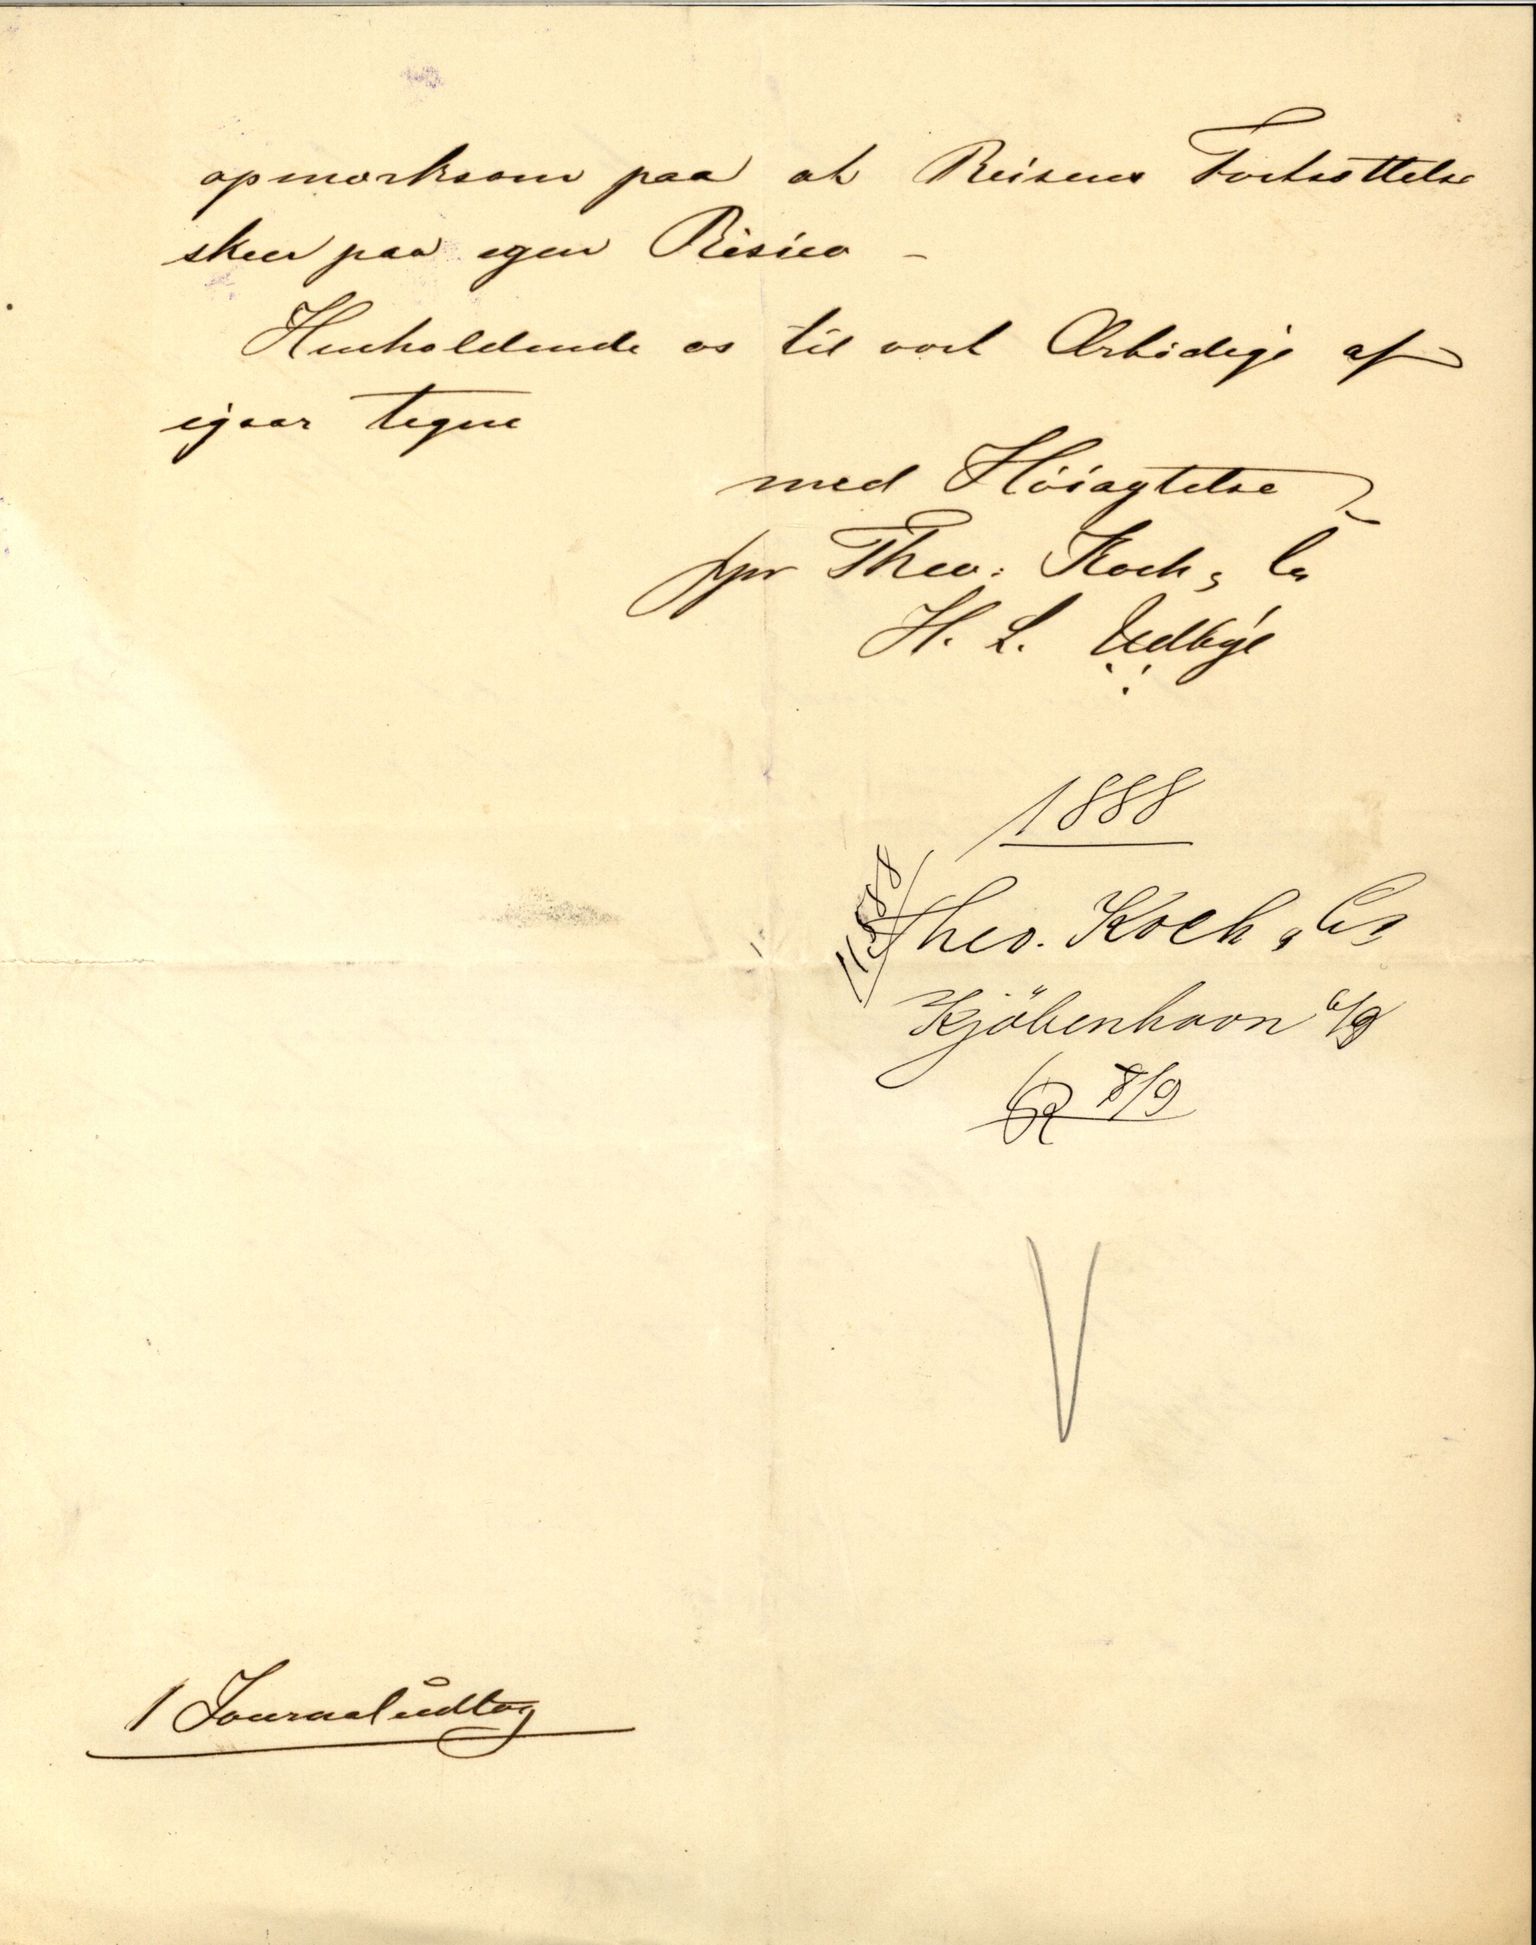 opmærksom paa at Reisens Fortsættelse
skeer paa egen Risico –
Henholdende os til vort Ærbödige af
igaar tegne
med Höiagtelse
ppr Theo: Koch & Co
H. L. Udbye
1888
Theo. Koch & Co
Kjöbenhavn 6/9
R 8/9
1 Journaludtog